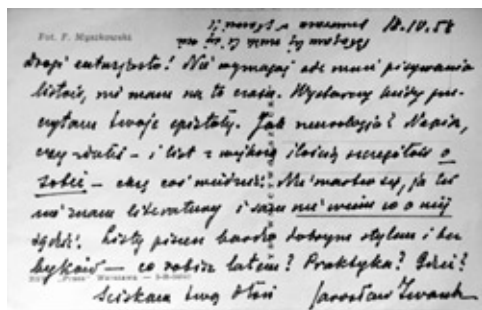 Fot. P. Myszkowski
18.IV.58
Drogi entuzjasto! Nie wymagaj ode mnie pisywania
listów, nie mam na to czasu. Wystarczy kiedy prze-
czytam twoje epistoły. Jak neurologia? Napisz,
czy zdałeś – i list z większą ilością szczegółów o
sobie – chcę coś wiedzieć. Nie martw się, ja też
nie znam literatury i sam nie wiem co o niej
sądzić. Listy piszesz bardzo dobrym stylem i bez
byków — co robisz latem? Praktyka? Gdzie?
Ściskam twą dłoń Jarosław Iwaszk